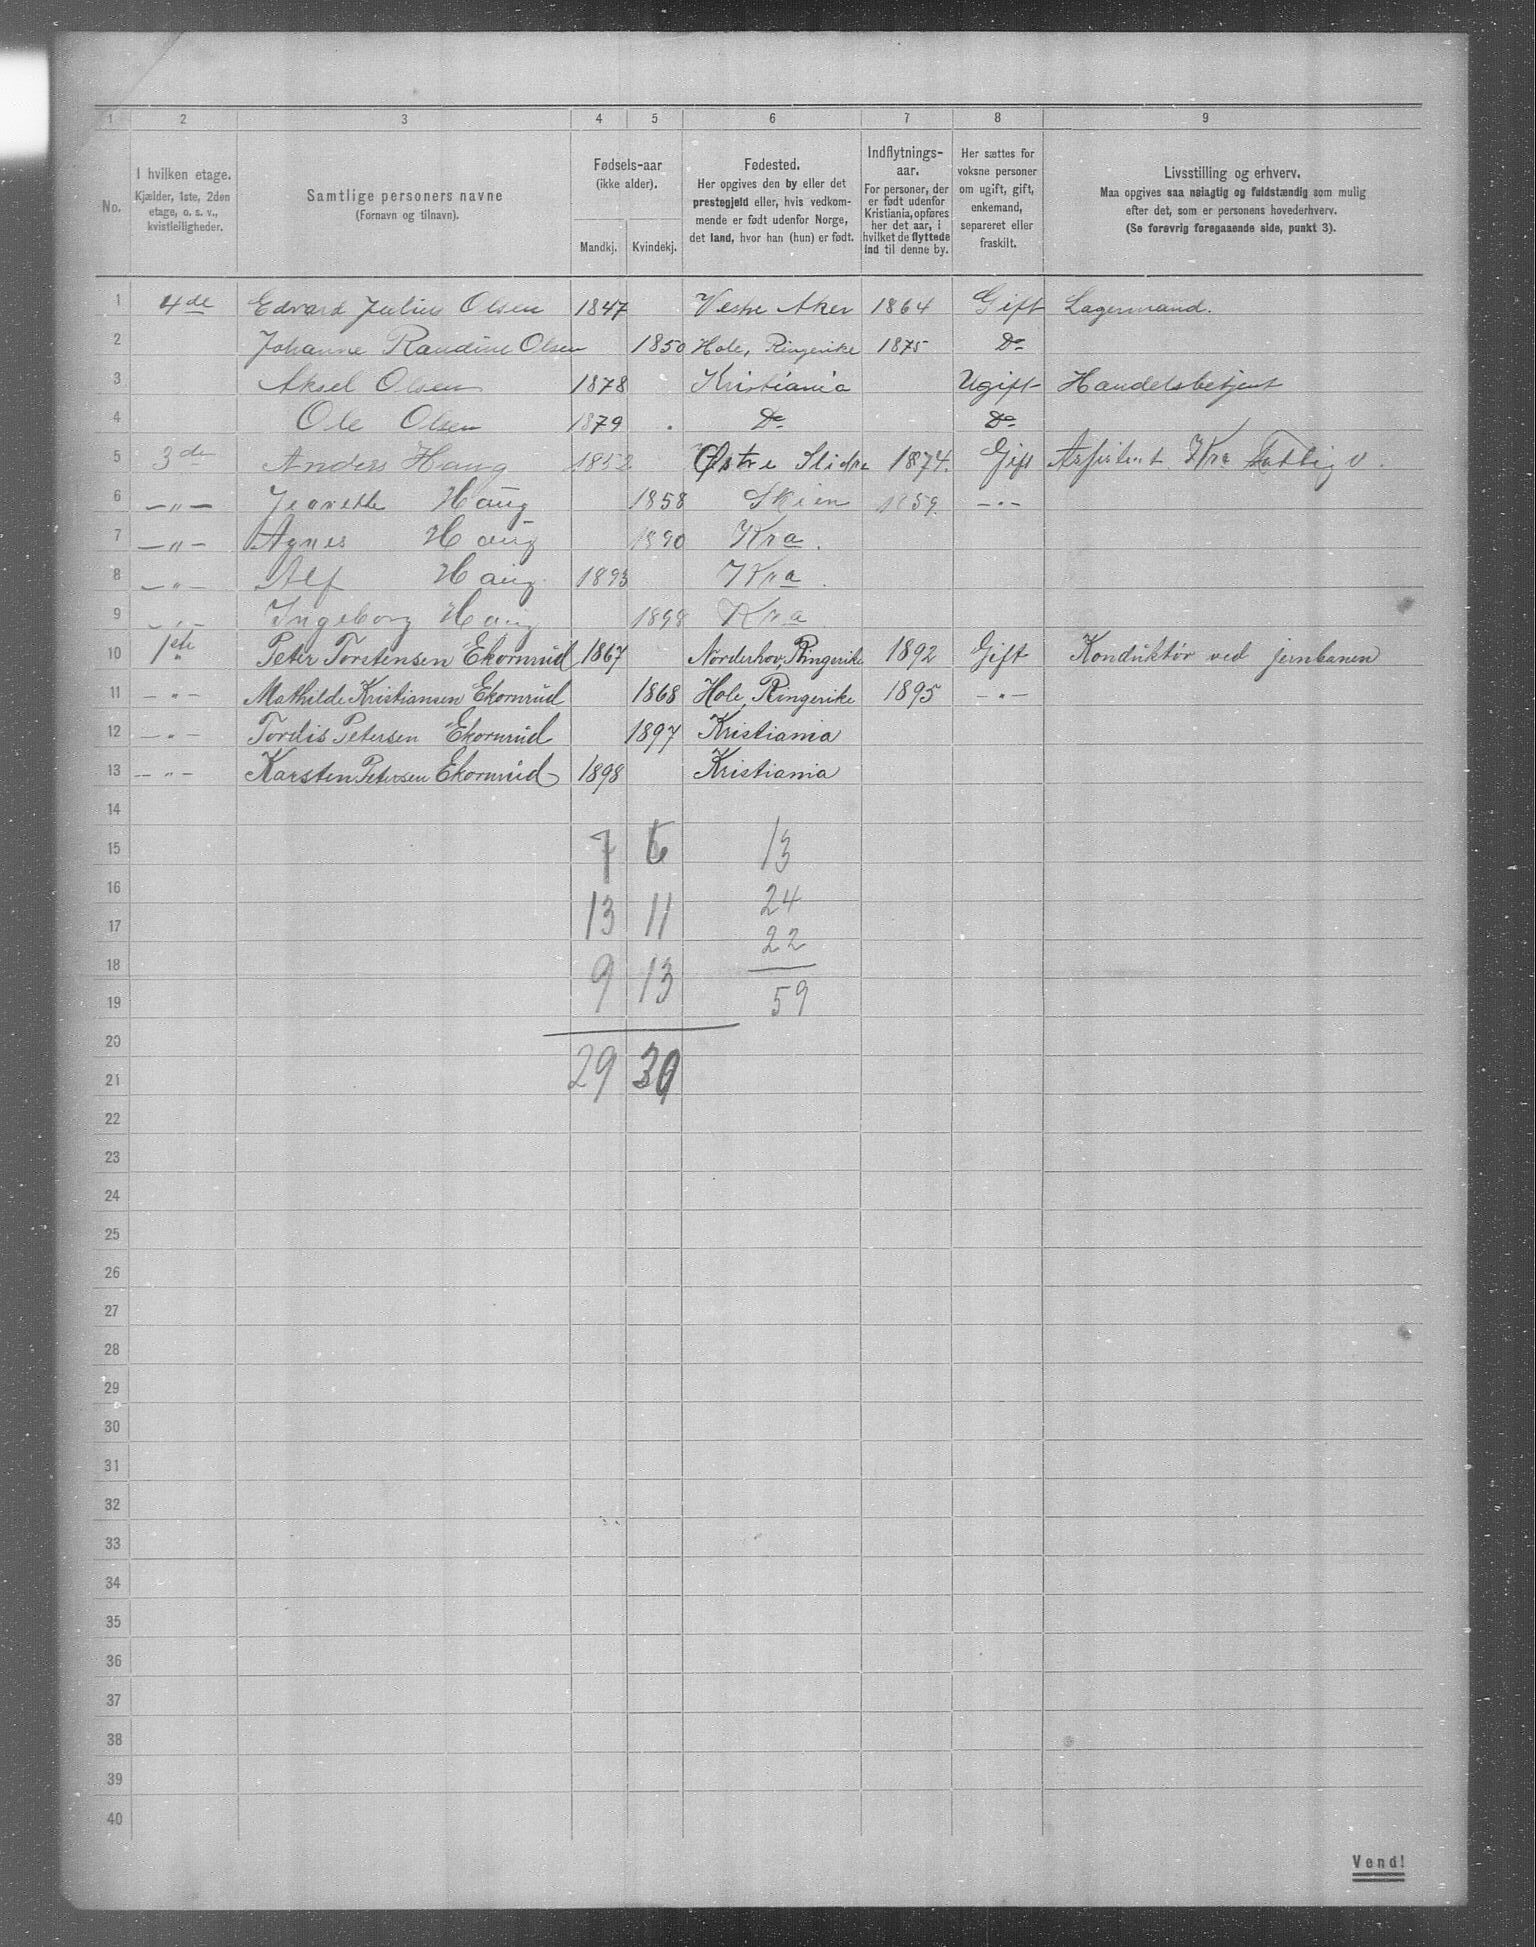 1 2 3 4 5 6 7 8 9
No. | I hvilken etage. Kjælder, 1ste, 2den etage, o. s. v., kvistleiligheder. | Samtlige personers navne (Fornavn og tilnavn). | Fødsels-aar (ikke alder). Mandkj. Kvindekj. | Fødested. Her opgives den by eller det prestegjeld eller, hvis vedkommende er født udenfor Norge, det land, hvor han (hun) er født. | Indflytnings-aar. For personer, der er født udenfor Kristiania, opføres her det aar, i hvilket de flyttede ind til denne by. | Her sættes for voksne personer om ugift, gift, enkemand, separeret eller fraskilt. | Livsstilling og erhverv. Maa opgives saa nøiagtig og fuldstændig som mulig efter det, som er personens hovederhverv. (Se forøvrig foregaaende side, punkt 3).
1 4de Edvard Julius Olsen 1847 Vestre Aker 1864 Gift Lagermand.
2 Johanne Randine Olsen 1850 Hole, Ringerike 1875 Do
3 Aksel Olsen 1878 Kristiania Ugift Handelsbetjent
4 Ole Olsen 1879 . Do Do
5 3de Anders Haug 1852 Østre Slidre 1874. Gift Assistent Kra Fattig v.
6 — " — Jeanette Haug 1858 Skien 1859. — " —
7 — " — Agnes Haug 1890 Kra.
8 — " — Alf Haug. 1893 Kra.
9 — " — Ingeborg Haug 1898 Kra.
10 1ste " Peter Torstensen Ekornrud 1867 Norderhov, Ringerike 1892 Gift Konduktør ved jernbanen
11 — " — Mathilde Kristiansen Ekornrud 1868 Hole, Ringerike 1895 — " —
12 — " — Tordis Petersen Ekornrud 1897 Kristiania
13 — " — Karsten Petersen Ekornrud 1898 Kristiania
14
15 7 6 13
16 24
17 13 11 22
18
19 9 13 59
20
21 29 30
22
23
24
25
26
27
28
29
30
31
32
33
34
35
36
37
38
39
40
Vend!